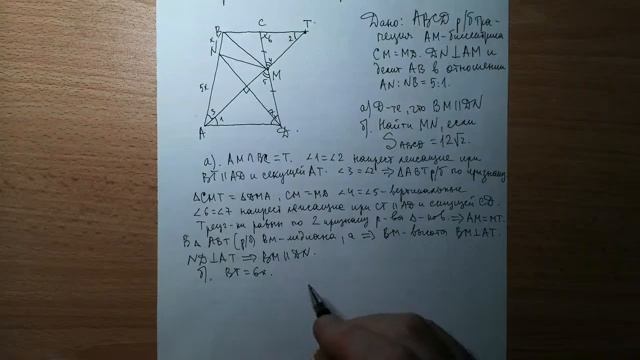 B C T
N
M
5x
3 1
A D
Дано: ABCD р/б тра-
пеция AM-биссектриса
CM=MD. DN⊥AM и
делит AB в отношении
AN:NB=5:1.
а) Д-те, что BM∥DN
б). Найти MN, если
S ABCD = 12√2.
а). AM∩BC=T. ∠1=∠2 накрест лежащие при
BT∥AD и секущей AT. ∠3=∠2 ⇒ ΔABT р/б по признаку
ΔCMT=ΔDMA, CM=MD ∠4=∠5-вертикальные
∠6=∠7 накрест лежащие при CT∥AD и секущей CD.
Треуг-ки равны по 2 признаку р-ва Δ-ков. ⇒ AM=MT.
В Δ ABT (р/б) BM-медиана, а ⇒ BM-высота BM⊥AT.
ND⊥AT ⇒ BM∥DN.
б). BT=6x.